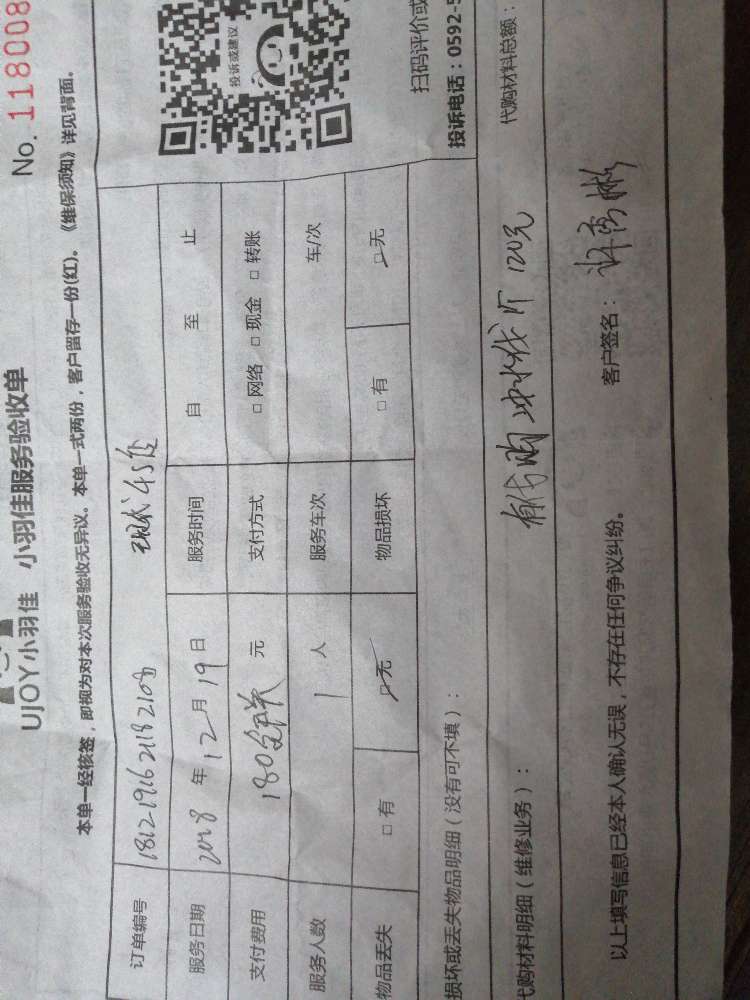 No. 118008
UJOY小羽佳 小羽佳服务验收单
本单一经核签，即视为对本次服务验收无异议。本单一式两份，客户留存一份(红)。《维保须知》详见背面。
订单编号 1812191621182108
服务日期 2018 年 12 月 19 日 服务时间 自 至 止
支付费用 180 元 支付方式 □ 网络 □ 现金 □ 转账
服务人数 1 人 服务车次 车/次
物品丢失 □ 有 □ 无 物品损坏 □ 有 □ 无
投诉或建议
扫码评价或
投诉电话：0592-5
损坏或丢失物品明细（没有可不填）：
代购材料明细（维修业务）： 代购材料总额：
120元
以上填写信息已经本人确认无误，不存在任何争议纠纷。 客户签名：